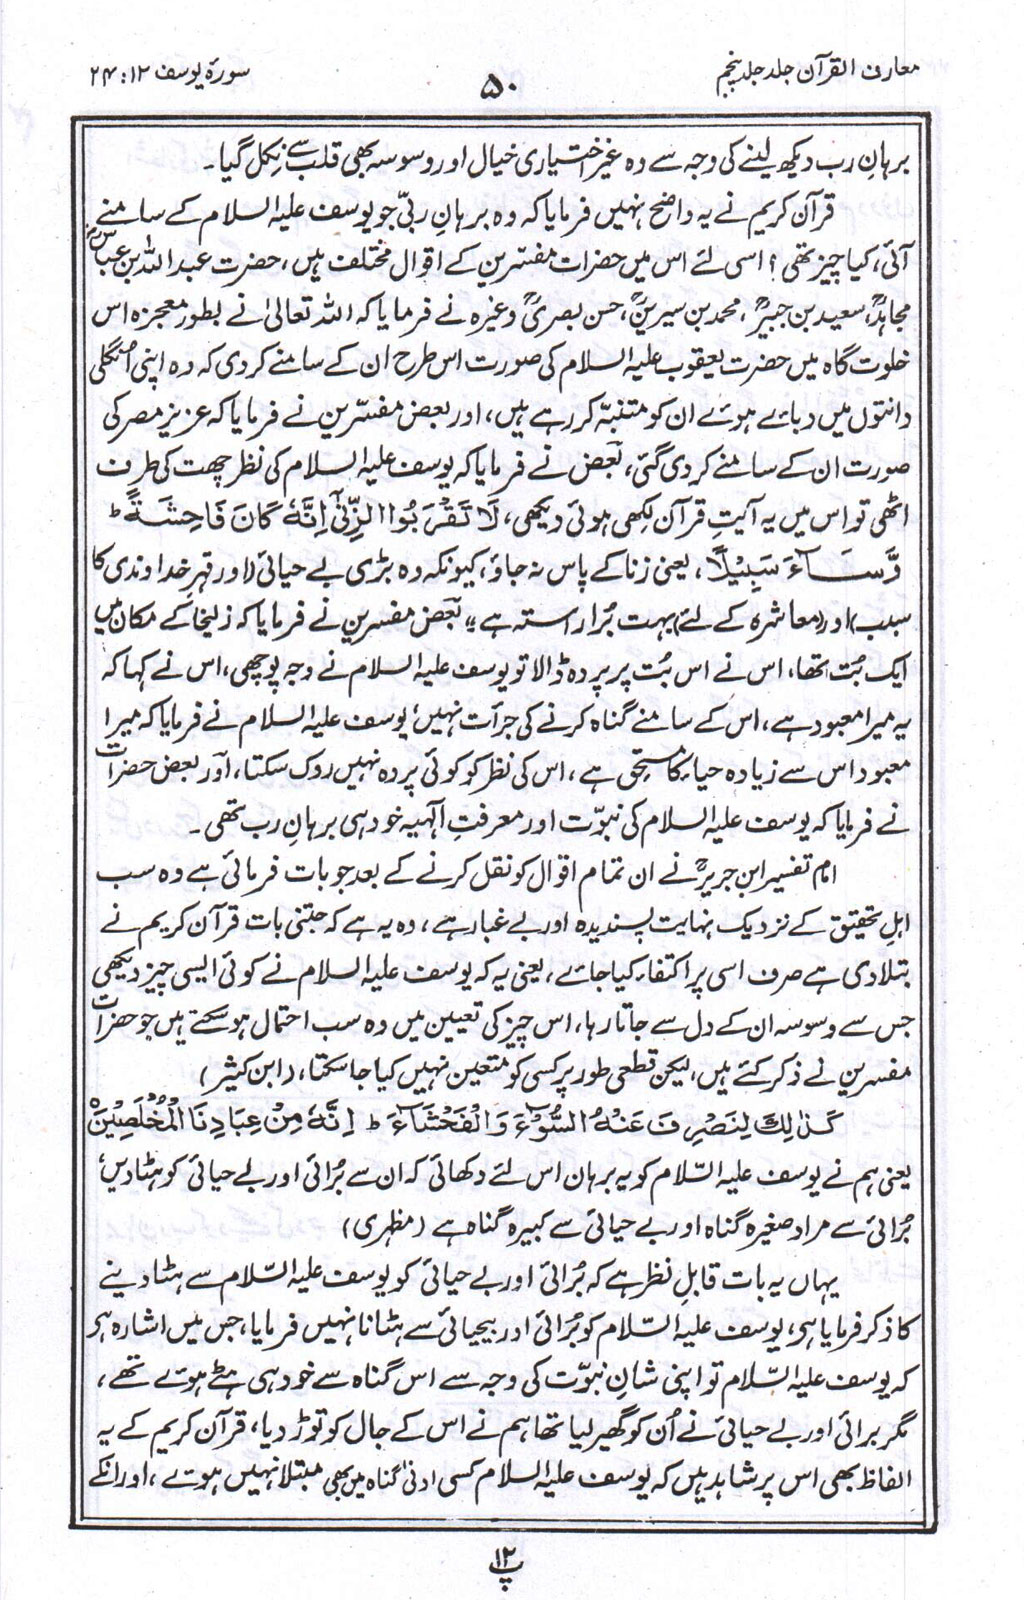 معارف القرآن جلد جلد پنجم
۵۰
سورۃ یوسف ۱۲ : ۲۴
برہانِ رب دیکھ لینے کی وجہ سے وہ غیر اختیاری خیال اور وسوسہ بھی قلب سے نکل گیا۔
قرآن کریم نے یہ واضح نہیں فرمایا کہ وہ برہانِ ربّی جو یوسف علیہ السلام کے سامنے
آئی، کیا چیز تھی؟ اسی لئے اس میں حضرات مفسّرین کے اقوال مختلف ہیں، حضرت عبداللہ بن عباسؓ
مجاہدؒ، سعید بن جبیرؒ، محمد بن سیرینؒ، حسن بصریؒ وغیرہ نے فرمایا کہ اللہ تعالیٰ نے بطور معجزہ اس
خلوت گاہ میں حضرت یعقوب علیہ السلام کی صورت اس طرح ان کے سامنے کر دی کہ وہ اپنی انگلی
دانتوں میں دبائے ہوئے ان کو متنبہ کر رہے ہیں، اور بعض مفسّرین نے فرمایا کہ عزیز مصر کی
صورت ان کے سامنے کر دی گئی، بعض نے فرمایا کہ یوسف علیہ السلام کی نظر چھت کی طرف
اٹھی تو اس میں یہ آیتِ قرآن لکھی ہوئی دیکھی، لَا تَقْرَبُوا الزِّنٰٓی اِنَّہٗ کَانَ فَاحِشَۃً ؕ
وَّسَآءَ سَبِیْلًا، یعنی زنا کے پاس نہ جاؤ، کیونکہ وہ بڑی بے حیائی (اور قہرِ خداوندی کا
سبب) اور (معاشرہ کے لئے) بہت بُرا راستہ ہے“ بعض مفسرین نے فرمایا کہ زلیخا کے مکان میں
ایک بُت تھا، اس نے اس بُت پر پردہ ڈالا تو یوسف علیہ السلام نے وجہ پوچھی، اس نے کہا کہ
یہ میرا معبود ہے، اس کے سامنے گناہ کرنے کی جرأت نہیں، یوسف علیہ السلام نے فرمایا کہ میرا
معبود اس سے زیادہ حیاء کا مستحق ہے، اس کی نظر کو کوئی پردہ نہیں روک سکتا، اور بعض حضرات
نے فرمایا کہ یوسف علیہ السلام کی نبوّت اور معرفتِ الٰہیہ خود ہی برہانِ رب تھی۔
امام تفسیر ابن جریرؒ نے ان تمام اقوال کو نقل کرنے کے بعد جو بات فرمائی ہے وہ سب
اہلِ تحقیق کے نزدیک نہایت پسندیدہ اور بے غبار ہے، وہ یہ ہے کہ جتنی بات قرآن کریم نے
بتلا دی ہے صرف اسی پر اکتفاء کیا جائے، یعنی یہ کہ یوسف علیہ السلام نے کوئی ایسی چیز دیکھی
جس سے وسوسہ ان کے دل سے جاتا رہا، اس چیز کی تعیین میں وہ سب احتمال ہو سکتے ہیں جو حضرات
مفسرین نے ذکر کئے ہیں، لیکن قطعی طور پر کسی کو متعین نہیں کیا جا سکتا، (ابن کثیر)
کَذٰلِکَ لِنَصْرِفَ عَنْہُ السُّوْٓءَ وَالْفَحْشَآءَ ؕ اِنَّہٗ مِنْ عِبَادِنَا الْمُخْلَصِیْنَ
یعنی ہم نے یوسف علیہ السّلام کو یہ برہان اس لئے دکھائی کہ ان سے بُرائی اور بے حیائی کو ہٹا دیں،
بُرائی سے مراد صغیرہ گناہ اور بے حیائی سے کبیرہ گناہ ہے (مظہری)
یہاں یہ بات قابلِ نظر ہے کہ بُرائی اور بے حیائی کو یوسف علیہ السّلام سے ہٹا دینے
کا ذکر فرمایا ہی، یوسف علیہ السّلام کو بُرائی اور بیحیائی سے ہٹانا نہیں فرمایا، جس میں اشارہ ہی
کہ یوسف علیہ السّلام تو اپنی شانِ نبوّت کی وجہ سے اس گناہ سے خود ہی ہٹے ہوئے تھے،
مگر برائی اور بے حیائی نے اُن کو گھیر لیا تھا ہم نے اس کے جال کو توڑ دیا، قرآن کریم کے یہ
الفاظ بھی اس پر شاہد ہیں کہ یوسف علیہ السلام کسی ادنیٰ گناہ میں بھی مبتلا نہیں ہوئے، اور انکے
پ۱۲